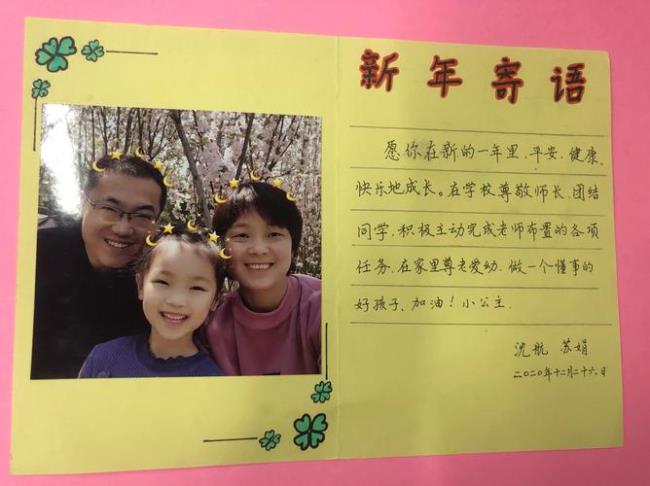 新年寄语
愿你在新的一年里、平安、健康、
快乐地成长。在学校尊敬师长、团结
同学、积极主动完成老师布置的各项
任务、在家里尊老爱幼、做一个懂事的
好孩子、加油！小公主.
沈航 苏娟
二〇二〇年十二月二十六日